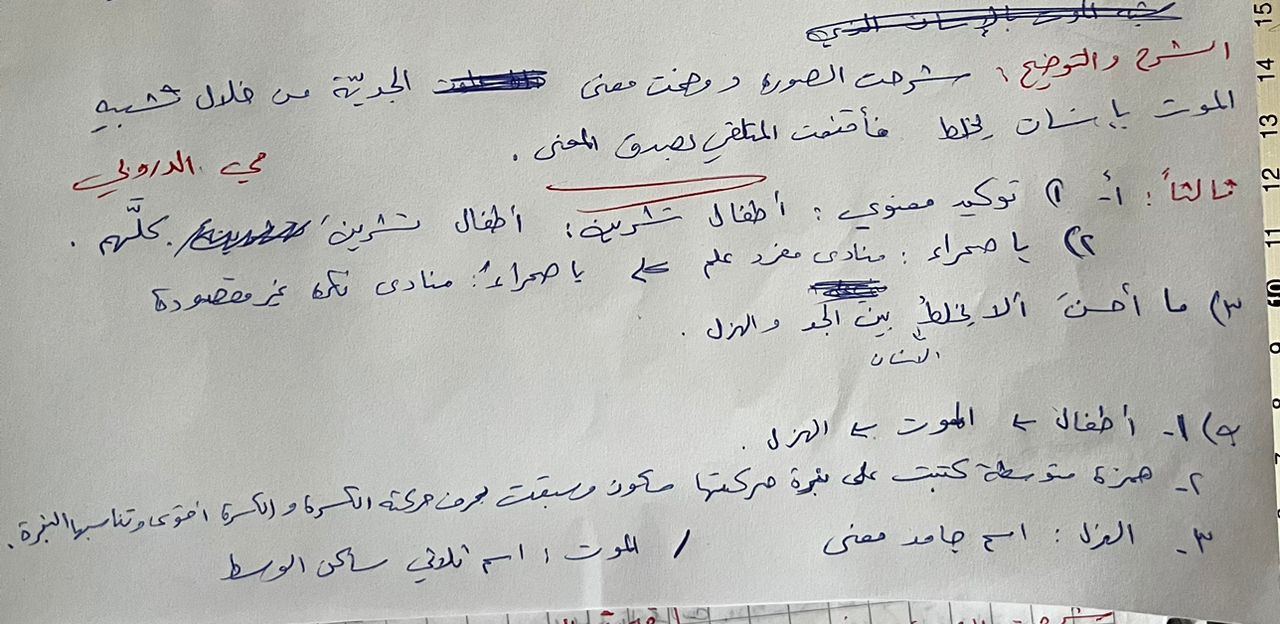 الشرح والتوضيح: شرحت الصورة ووضحت معنى الجديّة من خلال تشبيه
الموت بإنسان يخلط فأقنعت المتلقي بصدق المعنى.
مي الدروبي
ثالثاً: أ- ١) توكيد معنوي: أطفال تشرين: أطفال تشرين كلَّهم.
٢) يا صحراء: منادى مفرد علم ← يا صحراءُ: منادى نكرة غير مقصودة
٣) ما أحسنَ ألا يخلطُ بين الجد والهزل.
الإنسان
ب) ١- أطفال ← الموت ← الهزل.
٢- همزة متوسطة كتبت على نبرة حركتها سكون وسبقت بحرف حركته الكسرة والكسرة أقوى وتناسبها النبرة.
٣- الهزل: اسم جامد معنى / الموت: اسم ثلاثي ساكن الوسط